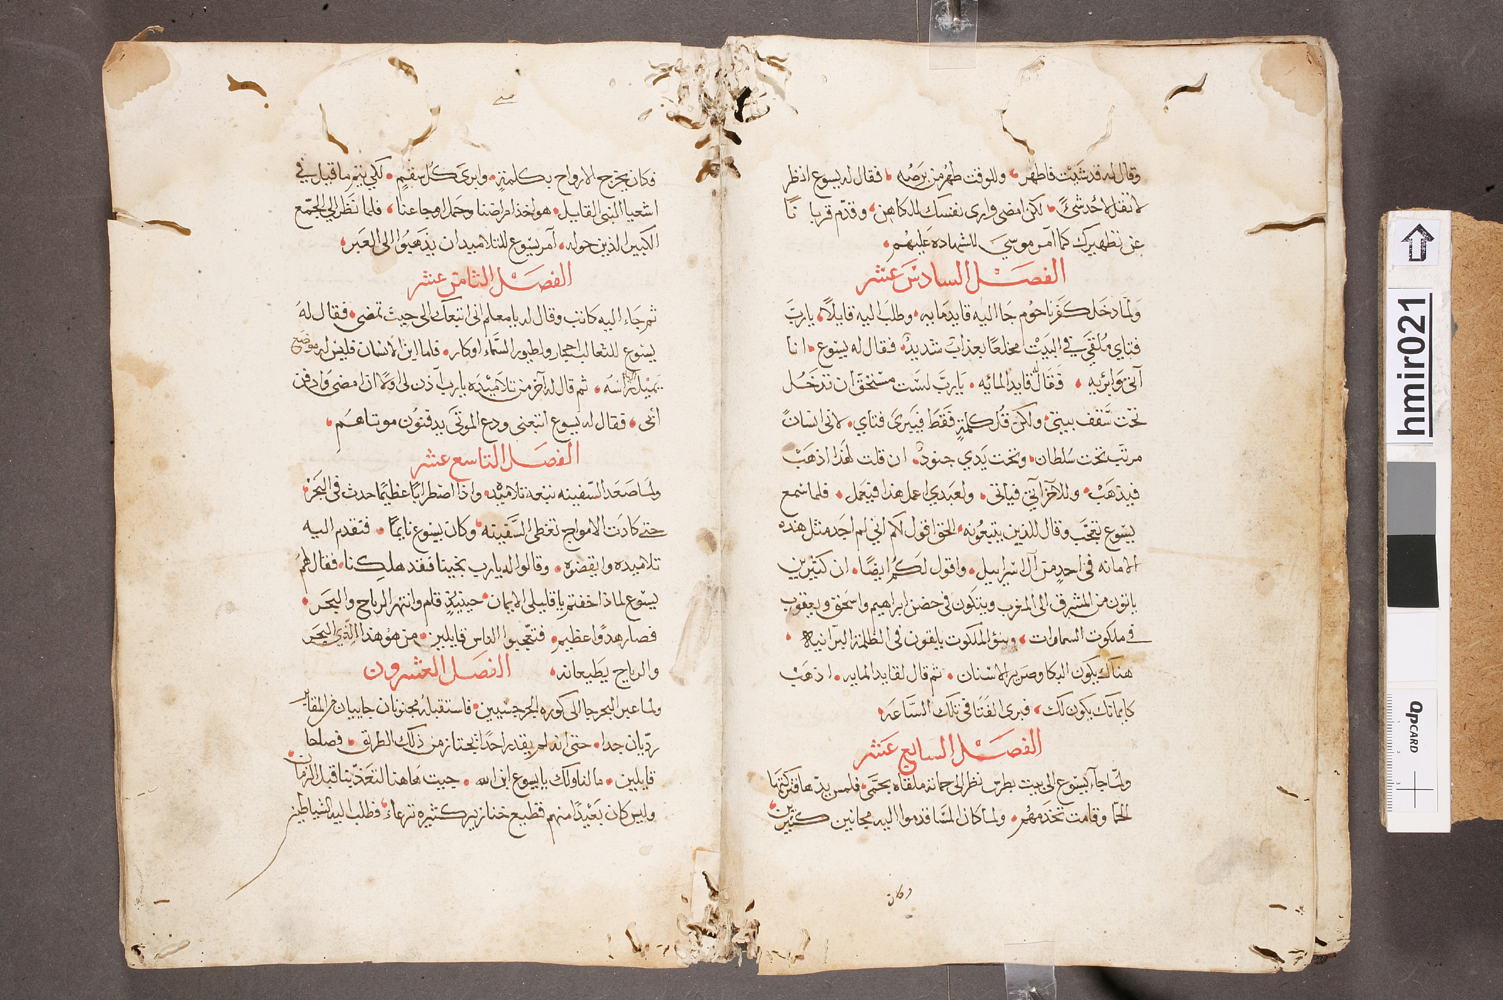 وقال له قد شيت فاطهر وللوقت طهر من برصه فقال له يسوع انظر
لا تقل لاحد شي لكن امضى وارى نفسك للكاهن وقدم قربانا
عن تطهيرك كما امر موسى للشهاده عليهم
الفصل السادس عشر
ولما دخل كفرناحوم جا اليه قايد مايه وطلب اليه قايلا يارب
فتاي ملقى في البيت مخلعا بعذاب شديد فقال له يسوع انا
آتى وابريه فقال قايد المائه يارب لست مستحق ان تدخل
تحت سقف بيتي ولكن قل كلمة فقط فيبرى فتاي لانى انسان
مرتب تحت سلطان وتحت يدي جنود ان قلت لهذا اذهب
فيذهب وللاخر آتى فياتى ولعبدي اعمل هذا فيعمل فلما سمع
يسوع تعجب وقال للذين يتبعونه الحق اقول لكم انى لم اجد مثل هذه
الامانه في احد من آل اسراييل واقول لكم ايضا ان كثيرين
ياتون من المشرق الى المغرب ويتكون في حضن ابراهيم واسحق ويعقوب
في ملكوت السماوات وبنو الملكوت يلقون في الظلمة البرانيه
هناك يكون البكا وصرير الاسنان ثم قال لقايد المايه اذهب
كايمانك يكون لك فبرى الفتا في تلك الساعه
الفصل السابع عشر
ولما جآ يسوع الى بيت بطرس نظر الى حماته ملقاه بحمى فلمس يدها فتركتها
الحمّا وقامت تخدمهم ولما كان المسا قدموا اليه مجانين كثيرين
وكان
فكان يخرج الارواح بكلمة وابرى كل سقم لكي يتم ما قيل في
اشعيا النبى القايل هو اخذ امراضنا وحمل اوجاعنا فلما نظر الي الجمع
الكبير الذين حوله امر يسوع للتلاميد ان يذهبوا الى العبر
الفصل الثامن عشر
ثم جاء اليه كاتب وقال له يا معلم انى اتبعك الى حيث تمضى فقال له
يسوع للثعالب اجحار ولطيور السماء اوكار فاما ابن الانسان فليس له موضع
يميل راسه ثم قال له آخر من تلاميذه يارب آذن لى اولا ان امضى وادفن
ابى فقال له يسوع اتبعنى ودع الموتى يدفنون موتاهم
الفصل التاسع عشر
ولما صعد السفينه تبعه تلاميذه واذا اضطرابا عظيما حدث في البحر
حتى كادت الامواج تغطي السفينه وكان يسوع نايما فتقدم اليه
تلاميده وايقضوه وقالوا له يارب نجينا فقد هلكنا فقال لهم
يسوع لماذا خفتم يا قليلى الايمان حينيذ قام وانتهر الرياح والبحر
فصار هدوا عظيم فتعجبوا الناس قايلين من هو هذا الذي البحر
والرياح يطيعانه الفصل العشرون
ولما عبر البحر جا الى كوره الجرجسيين فاستقبله مجنونان جاييان من المقابر
رديان جدا حتى انه لم يقدر احدا يجتاز من ذلك الطريق فصاحا
قايلين ما لنا ولك يا يسوع ابن الله جيت هاهنا لتعذبنا قبل الزمان
وليس كان بعيدا منهم قطيع خنازير كثيره ترعا فطلب اليه الشياطين